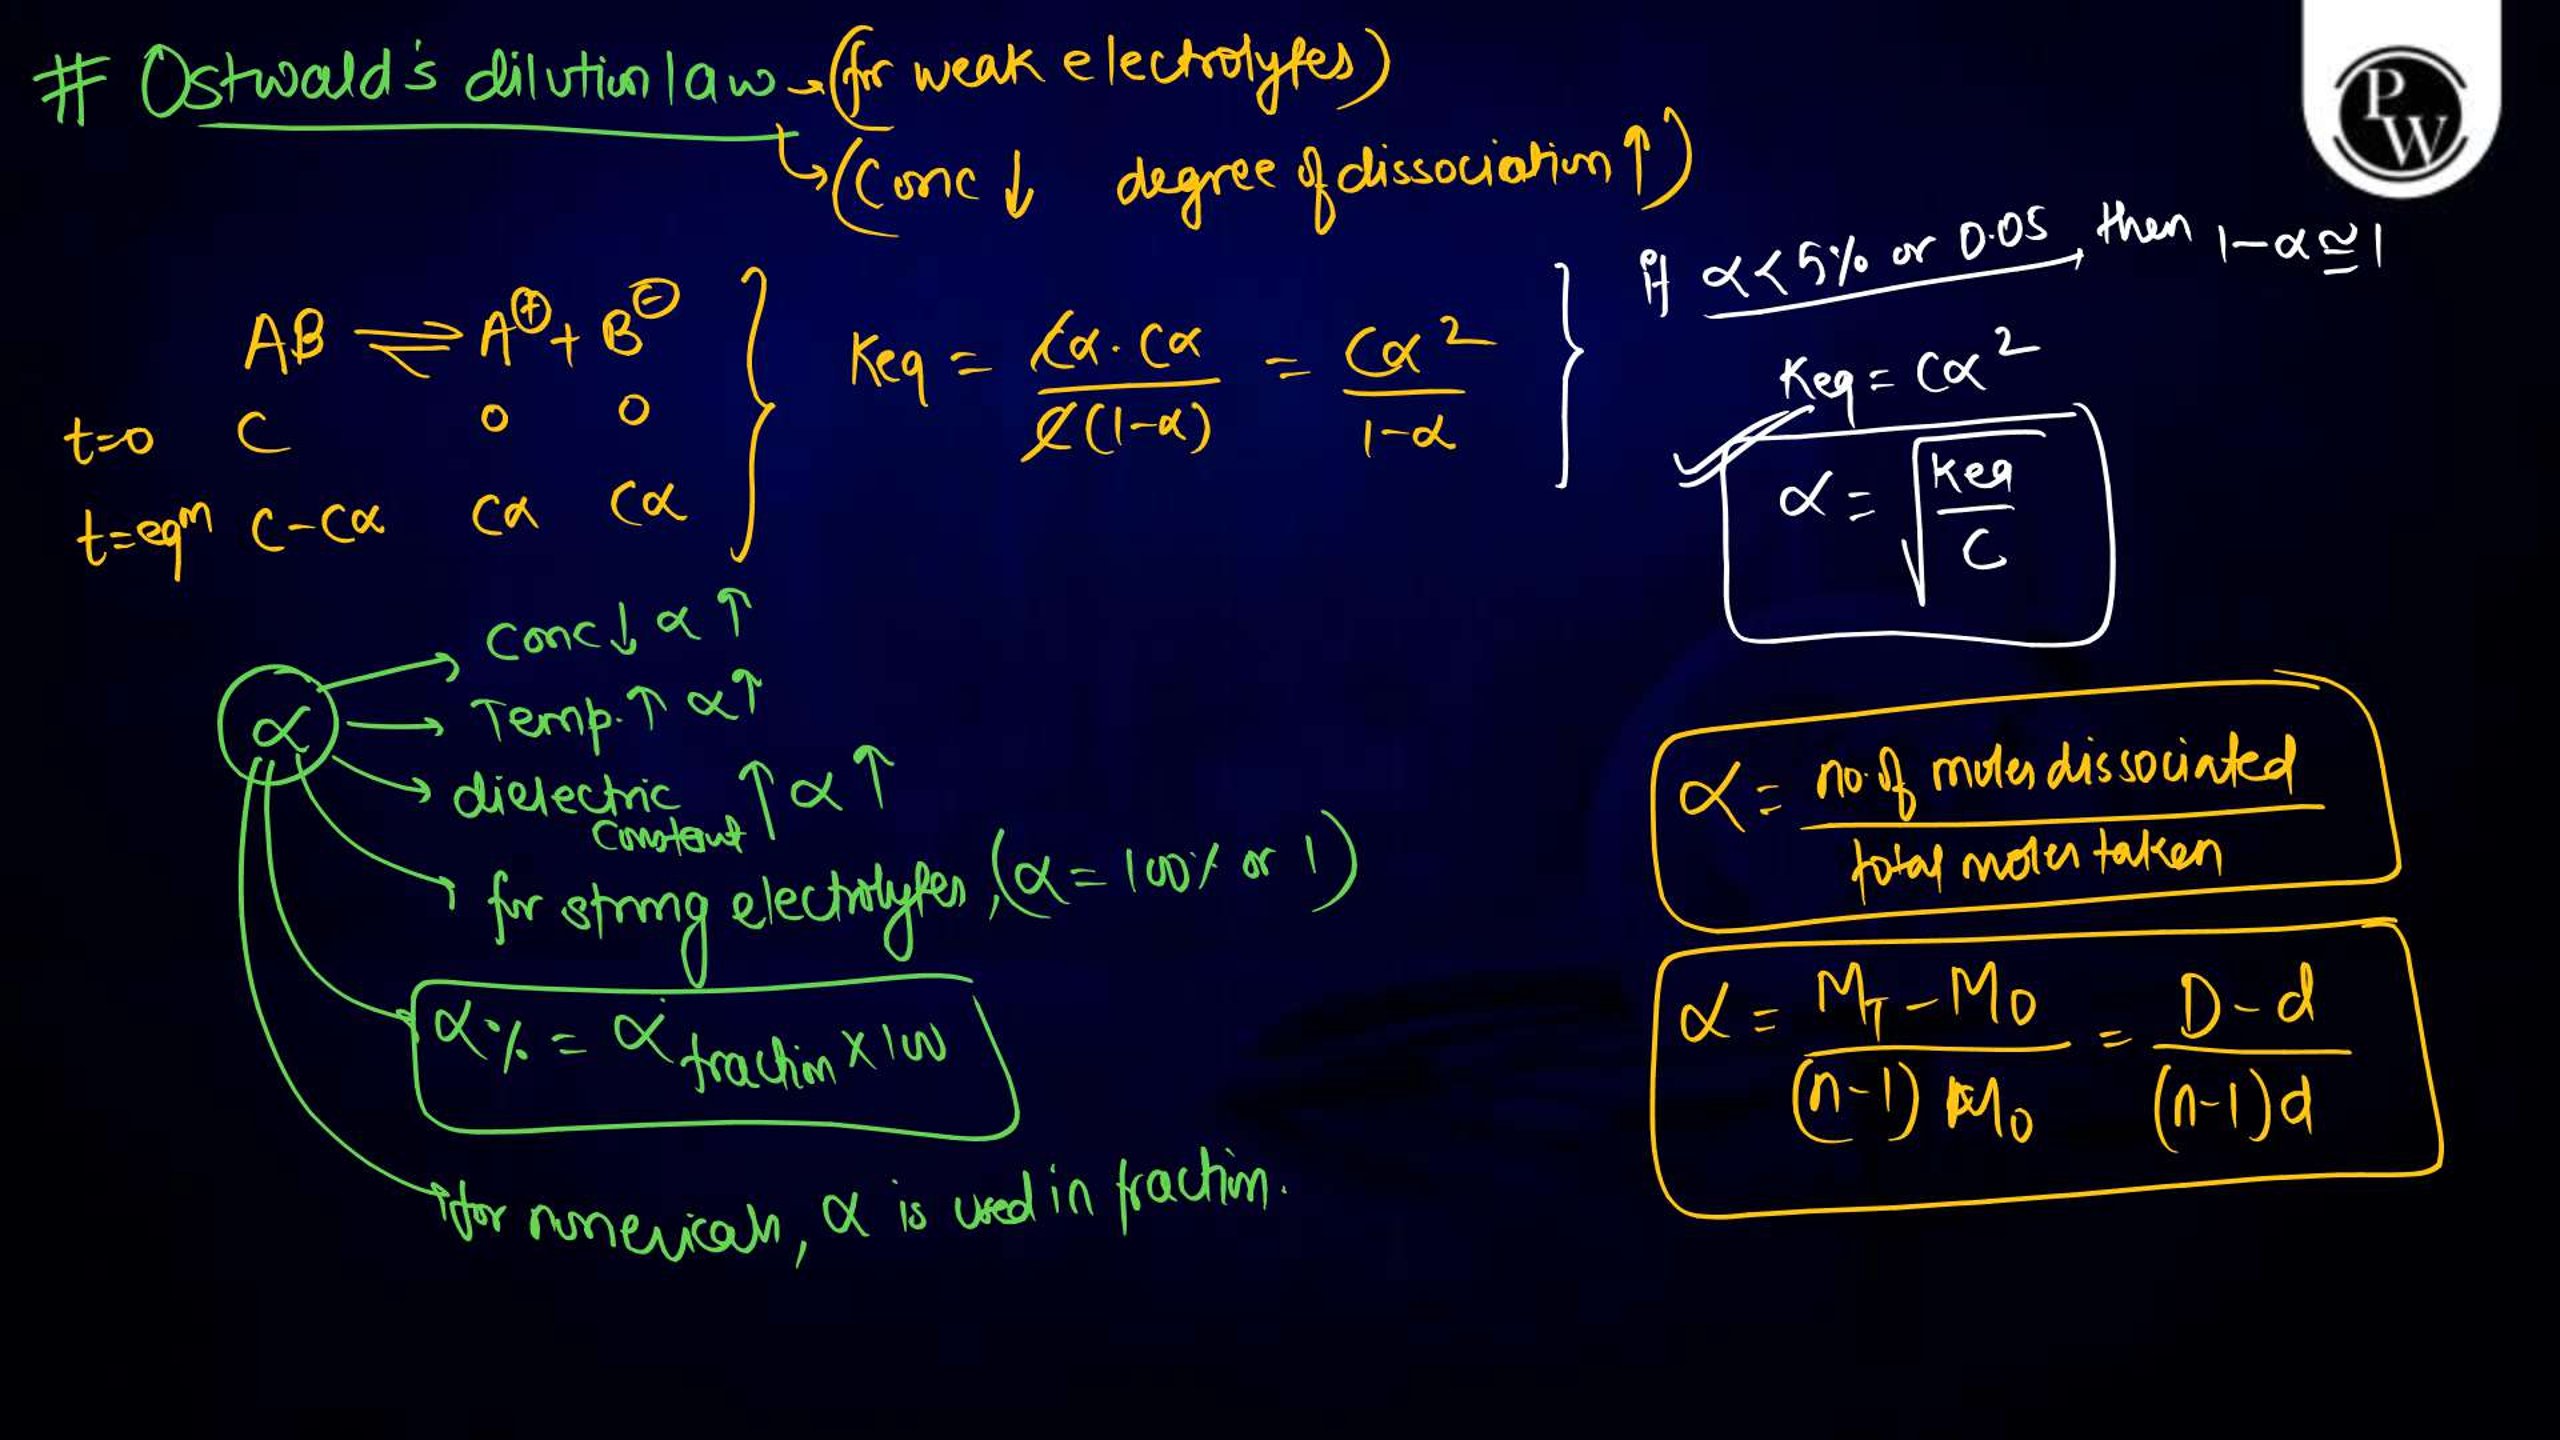 # Ostwald's dilution law → (for weak electrolytes)
↳ (Conc ↓ degree of dissociation ↑)
PW
if α < 5% or 0.05, then 1-α ≅ 1
AB ⇌ A⊕ + B⊖
t=0 C 0 0
t=eqm C-Cα Cα Cα
Keq = Cα . Cα / C(1-α) = Cα² / 1-α
Keq = Cα²
α = √(Keq / C)
α
→ Conc ↓ α ↑
→ Temp. ↑ α ↑
→ dielectric constant ↑ α ↑
→ for strong electrolytes, (α = 100% or 1)
α% = α fraction × 100
→ for numericals, α is used in fraction.
α = no. of moles dissociated / total moles taken
α = MT - MO / (n-1) MO = D - d / (n-1)d